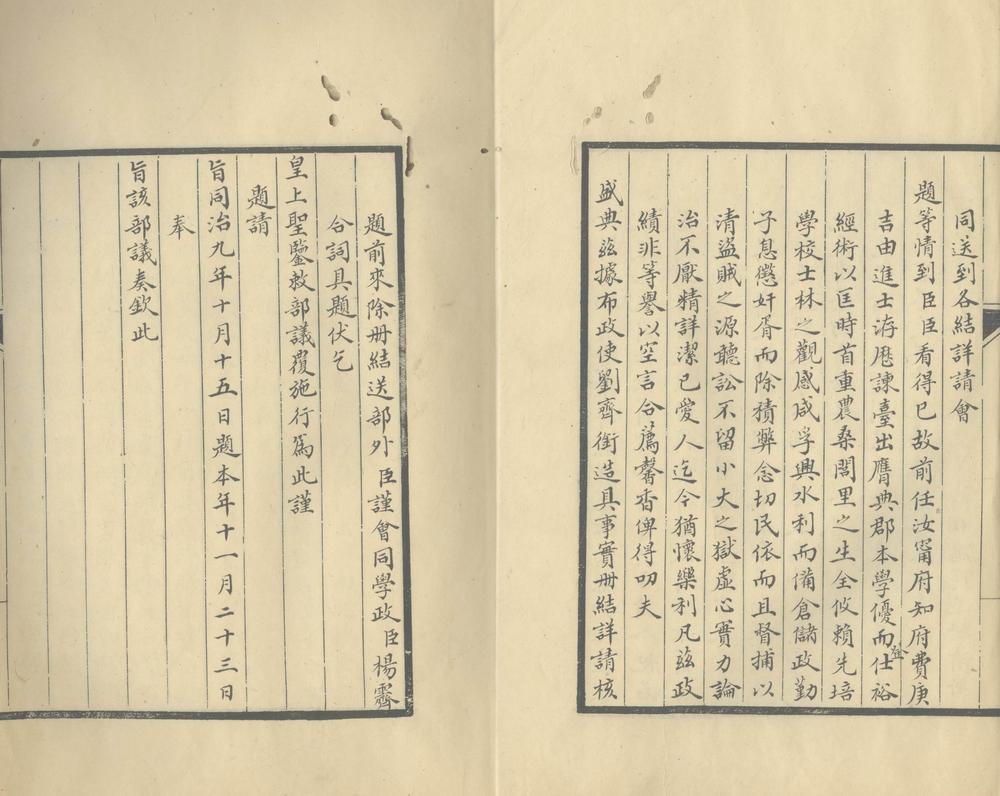 同送到各結詳請會
題等情到臣臣看得已故前任汝甯府知府費庚
吉由進士洊歷諫臺出膺典郡本學優而登仕裕
經術以匡時首重農桑閭里之生全攸賴先培
學校士林之觀感咸孚興水利而備倉儲政勤
子息懲奸胥而除積弊念切民依而且督捕以
清盜賊之源聽訟不留小大之獄虛心實力論
治不厭精詳潔己愛人迄今猶懷樂利凡茲政
績非等譽以空言合薦馨香俾得叨夫
盛典茲據布政使劉齊銜造具事實册結詳請核
題前來除册結送部外臣謹會同學政臣楊霽
合詞具題伏乞
皇上聖鑒敕部議覆施行為此謹
題請
旨同治九年十月十五日題本年十一月二十三日
奉
旨該部議奏欽此